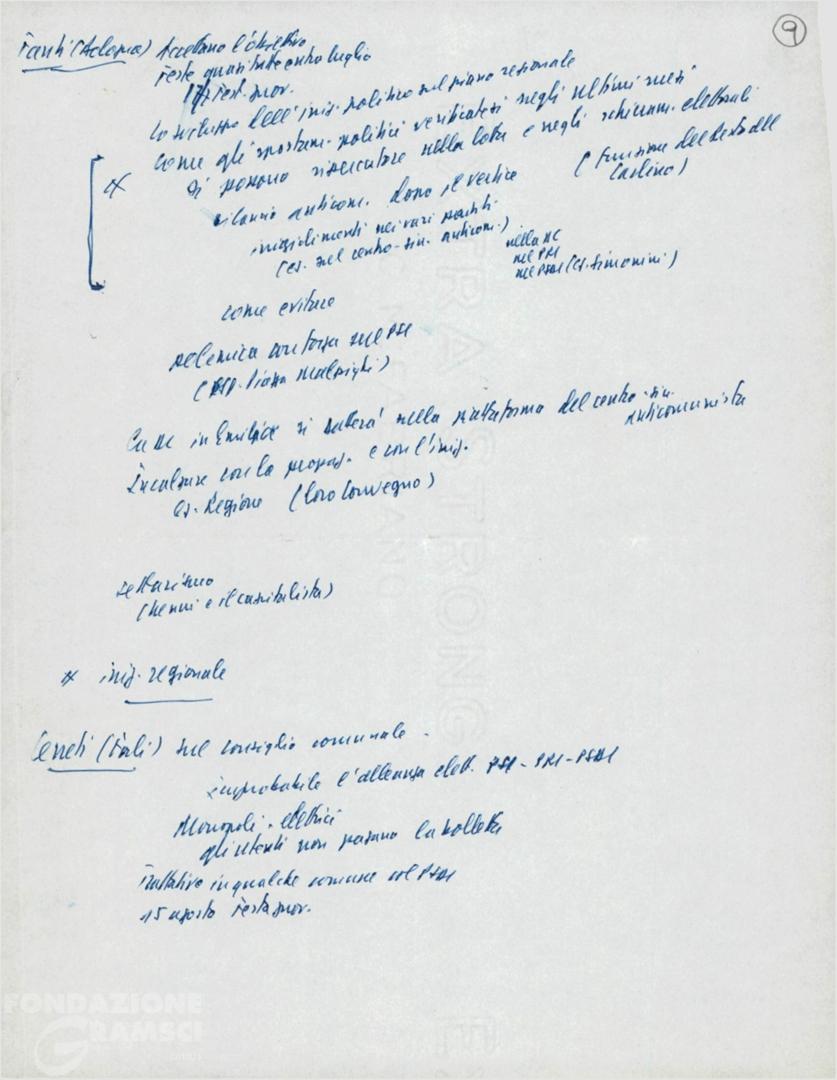 9
Fanti (Bologna) Accettano l'obiettivo
Feste quasi tutte entro luglio
Fest. prov.
Lo sviluppo dell'iniz. politica sul piano regionale
come gli spostam. politici verificatesi negli ultimi mesi
si possono ripercuotere nella lotta e negli schieram. elettorali
rilancio anticom. dopo il vertice (Funzione del Resto del Carlino)
irrigidimenti nei vari partiti
(es. sul centro-sin. anticom.)
nella DC
nel PRI
nel PSDI (es. Simonini)
come evitare
polemica con forza sul PSI
(Piazza Malpighi)
La DC in Emilia si batterà sulla piattaforma del centro-sin. anticomunista
Incalzare con la propag. e con l'iniz.
es. Regione (loro Convegno)
settarismo
(Nenni e il capitalista)
iniz. regionale
(Forlì) sul consiglio comunale.
improbabile l'alleanza elett. PSI - PRI - PSDI
Monopoli - elettrici
gli utenti non pagano la bolletta
Trattative in qualche comune col PSDI
15 agosto Festa prov.
FONDAZIONE
GRAMSCI